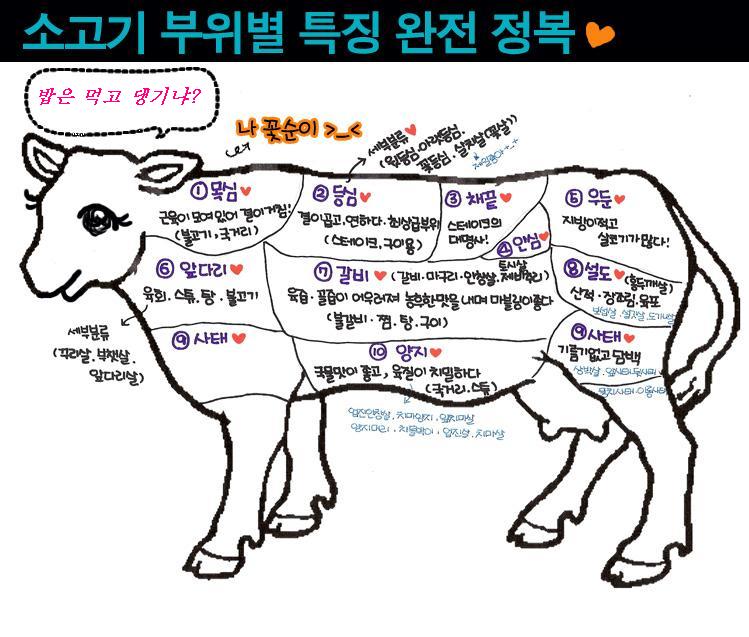 소고기 부위별 특징 완전 정복
밥은 먹고 댕기냐?
나 꽃순이 >_<
세부분류
(윗등심·아랫등심·
꽃등심·살치살(꽃살))
① 목심
근육이 모여있어 결이거침!
(불고기, 국거리)
② 등심
결이곱고,연하다·최상급부위
(스테이크,구이용)
③ 채끝
스테이크의
대명사!
④ 안심
토시살
⑤ 우둔
지방이적고
살코기가 많다!
⑥ 앞다리
육회.스튜.탕·불고기
세부분류
(꾸리살.부챗살.
앞다리살)
⑦ 갈비 (갈비·마구리·안창살.제비추리)
육즙·골즙이 어우러져 농후한맛을 내며 마블링이좋다
(불갈비·찜.탕.구이)
⑧ 설도 (홍두깨살)
산적·장조림.육포
보섭살.설깃살.도가니살
⑨ 사태
⑨ 사태
기름기없고 담백
⑩ 양지
국물맛이 좋고, 육질이 치밀하다
(국거리.스튜)
업진안창살.치마양지.앞치마살
양지머리.차돌박이.업진살.치마살